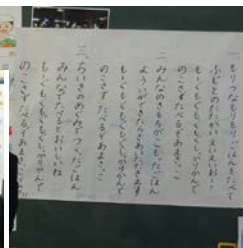 一 もりつなもりもりごはんをたべて
ふじとのたたかいえいえいおー!
もーぐもーぐもぐもぐしっかりかんで
のこさずたべるぞあまきっこ
二 みんなのきもちがこもったごはん
よういができたらさあいただきます
もーぐもーぐもぐもぐしっかりかんで
のこさずたべるぞあまきっこ
三 ちいきのめぐみでつくったごはん
みんなでたべるとおいしいね
もーぐもーぐもぐもぐしっかりかんで
のこさずたべるぞあまきっこ